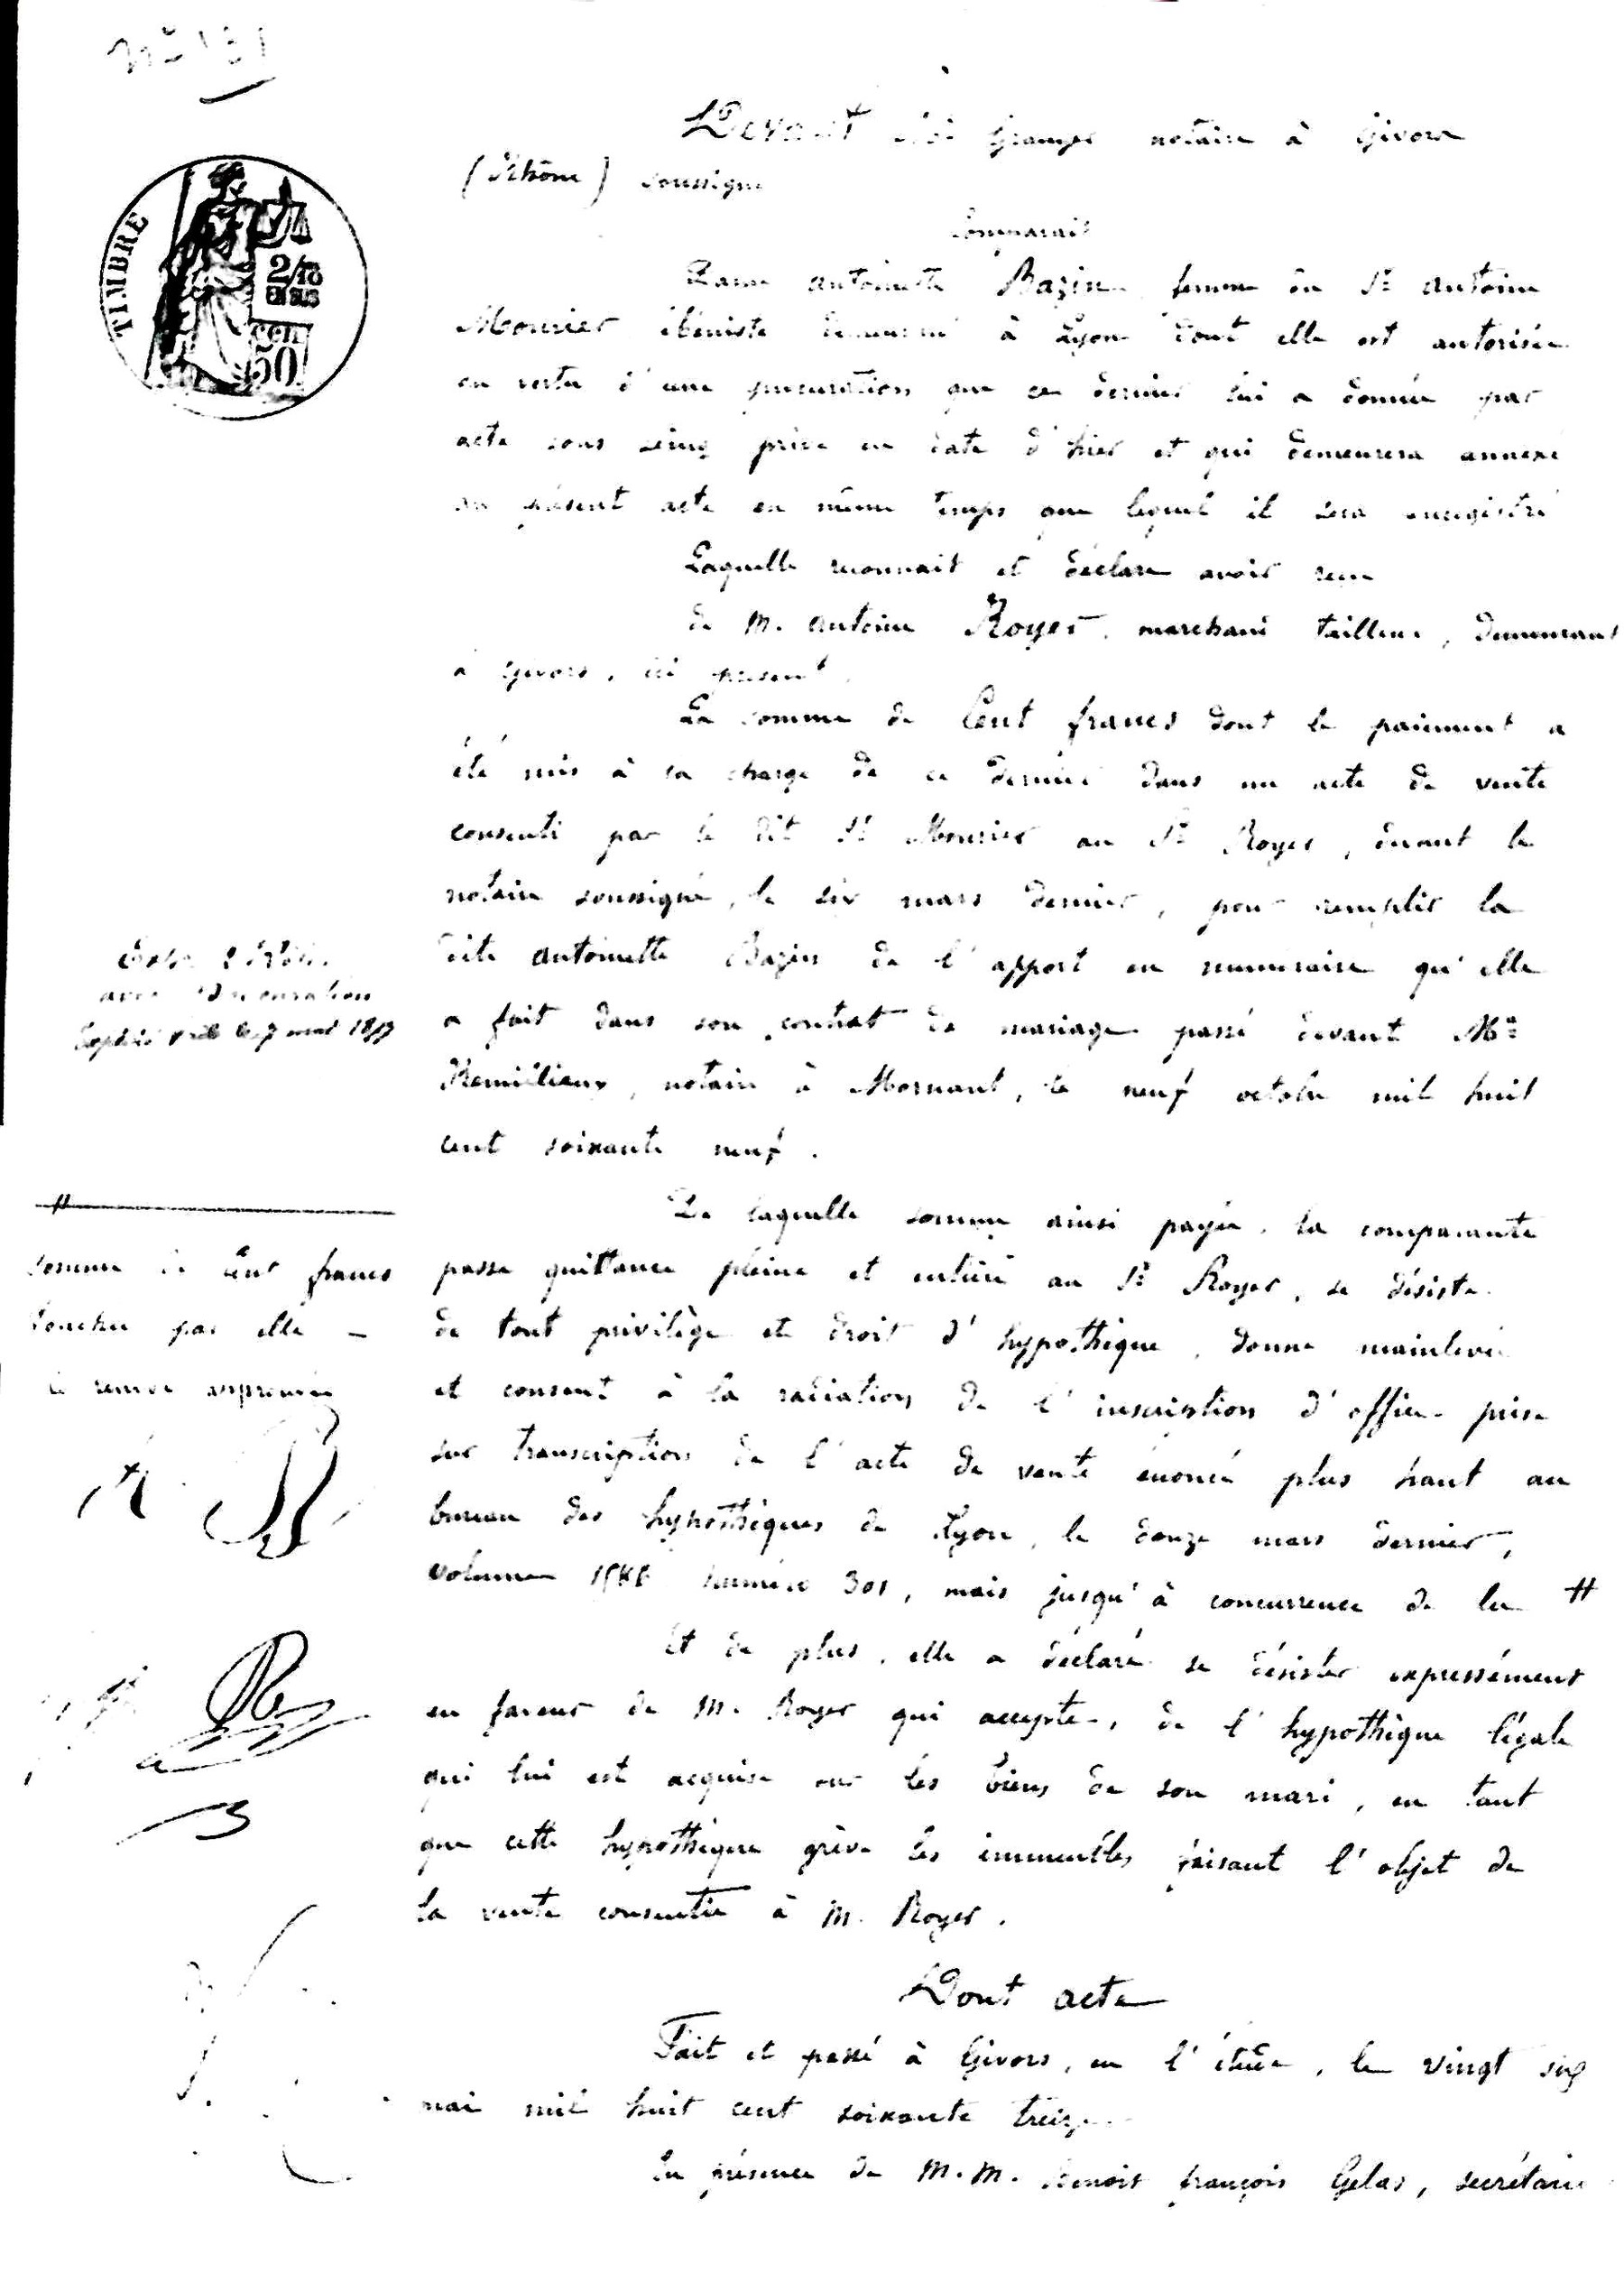 Devant Me Granger notaire à Givors
(Rhône) soussigné
Comparait
Dame Antoinette Bazin femme du Sr Antoine
Mourier ébéniste demeurant à Lyon dont elle est autorisée
en vertu d'une procuration que ce dernier lui a donnée par
acte sous seing privé en date d'hier et qui demeurera annexé
au présent acte en même temps que lequel il sera enregistré
Laquelle reconnait et déclare avoir reçu
de M. Antoine Royer, marchand tailleur, demeurant
à Givors, ici présent,
La somme de Cent francs dont le paiement a
été mis à la charge de ce dernier dans un acte de vente
consenti par le dit Sr Mourier au Sr Royer, devant le
notaire soussigné, le six mars dernier, pour remplir la
dite Antoinette Bazin de l'apport en numéraire qu'elle
a fait dans son contrat de mariage passé devant Me
Remillieux, notaire à Mornant, le neuf octobre mil huit
cent soixante neuf.
De laquelle somme ainsi payée, la comparante
passe quittance pleine et entière au Sr Royer, se désiste
de tout privilège et droit d'hypothèque, donne mainlevée
et consent à la radiation de l'inscription d'office prise
sur transcription de l'acte de vente énoncé plus haut au
bureau des hypothèques de Lyon, le douze mars dernier,
volume numéro 301, mais jusqu'à concurrence de la #
Et de plus, elle a déclaré se désister expressément
en faveur de M. Royer qui accepte, de l'hypothèque légale
qui lui est acquise sur les biens de son mari, en tant
que cette hypothèque grève les immeubles faisant l'objet de
la vente consentie à M. Royer.
Dont acte
Fait et passé à Givors, en l'étude, le vingt six
mai mil huit cent soixante treize
En présence de M.M. Benoit françois Gelas, secrétaire
TIMBRE
2/10
EN SUS
50 CEN
avec procuration
#
somme de Cent francs
touchée par elle -
le renvoi approuvé